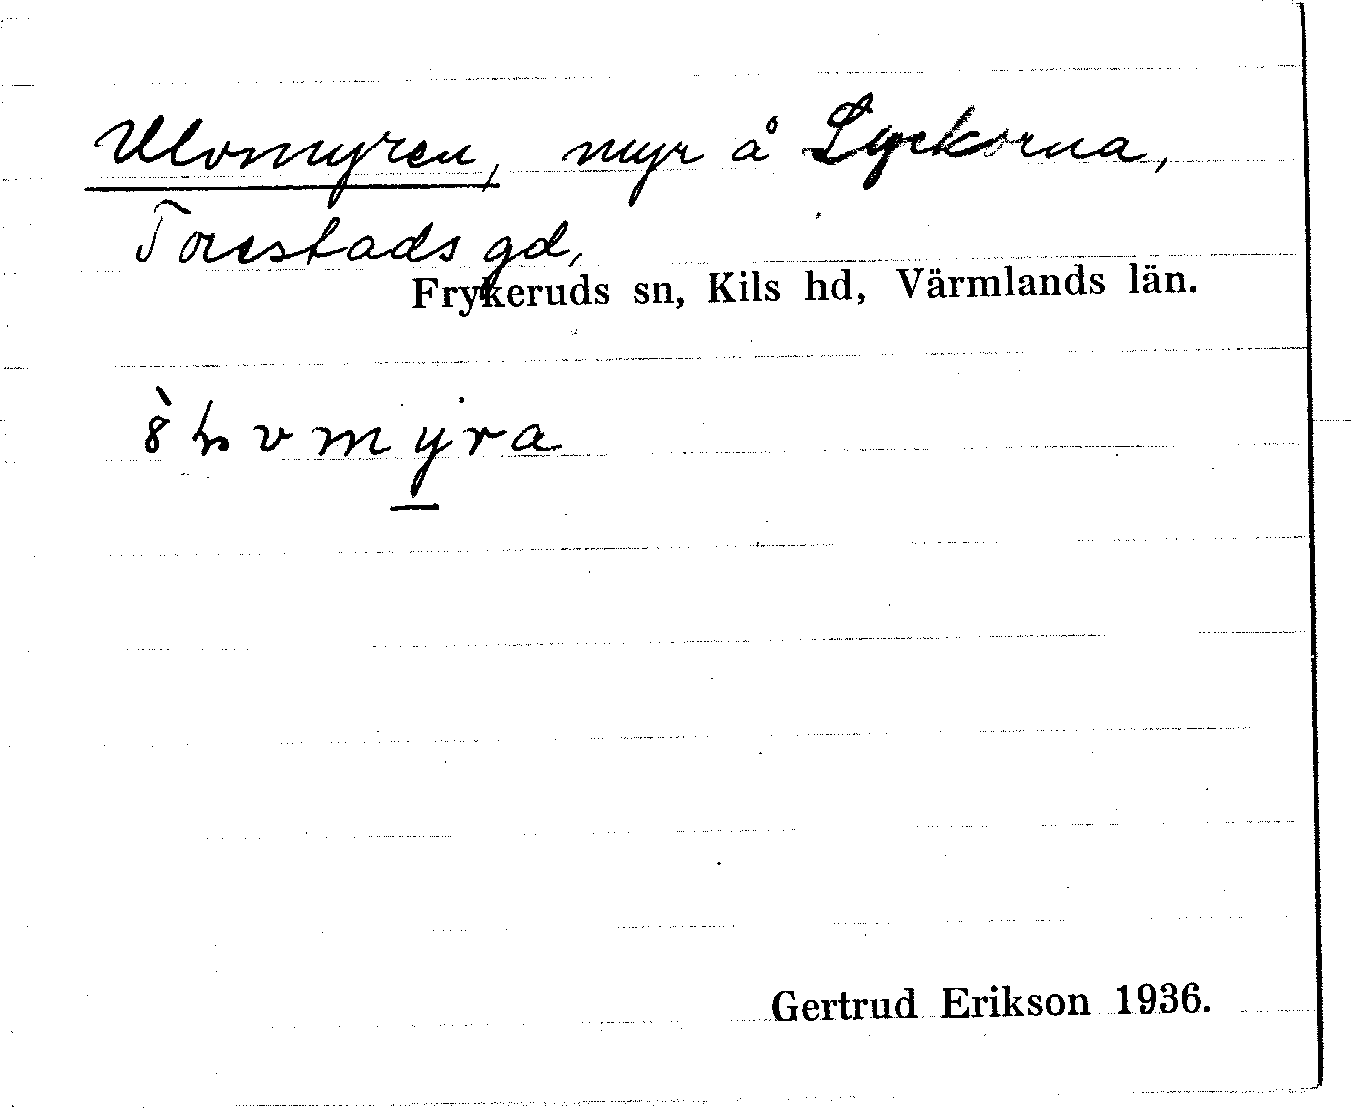 Ulvmyren, myr å Lyckorna,
Torestads gd,
Frykeruds sn, Kils hd, Värmlands län.
Gertrud Erikson 1936.